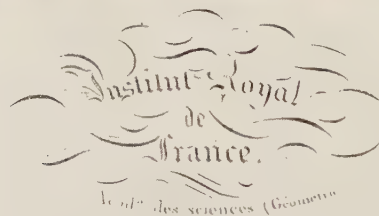 Institut Royal
de
France.
des sciences (Géométrie